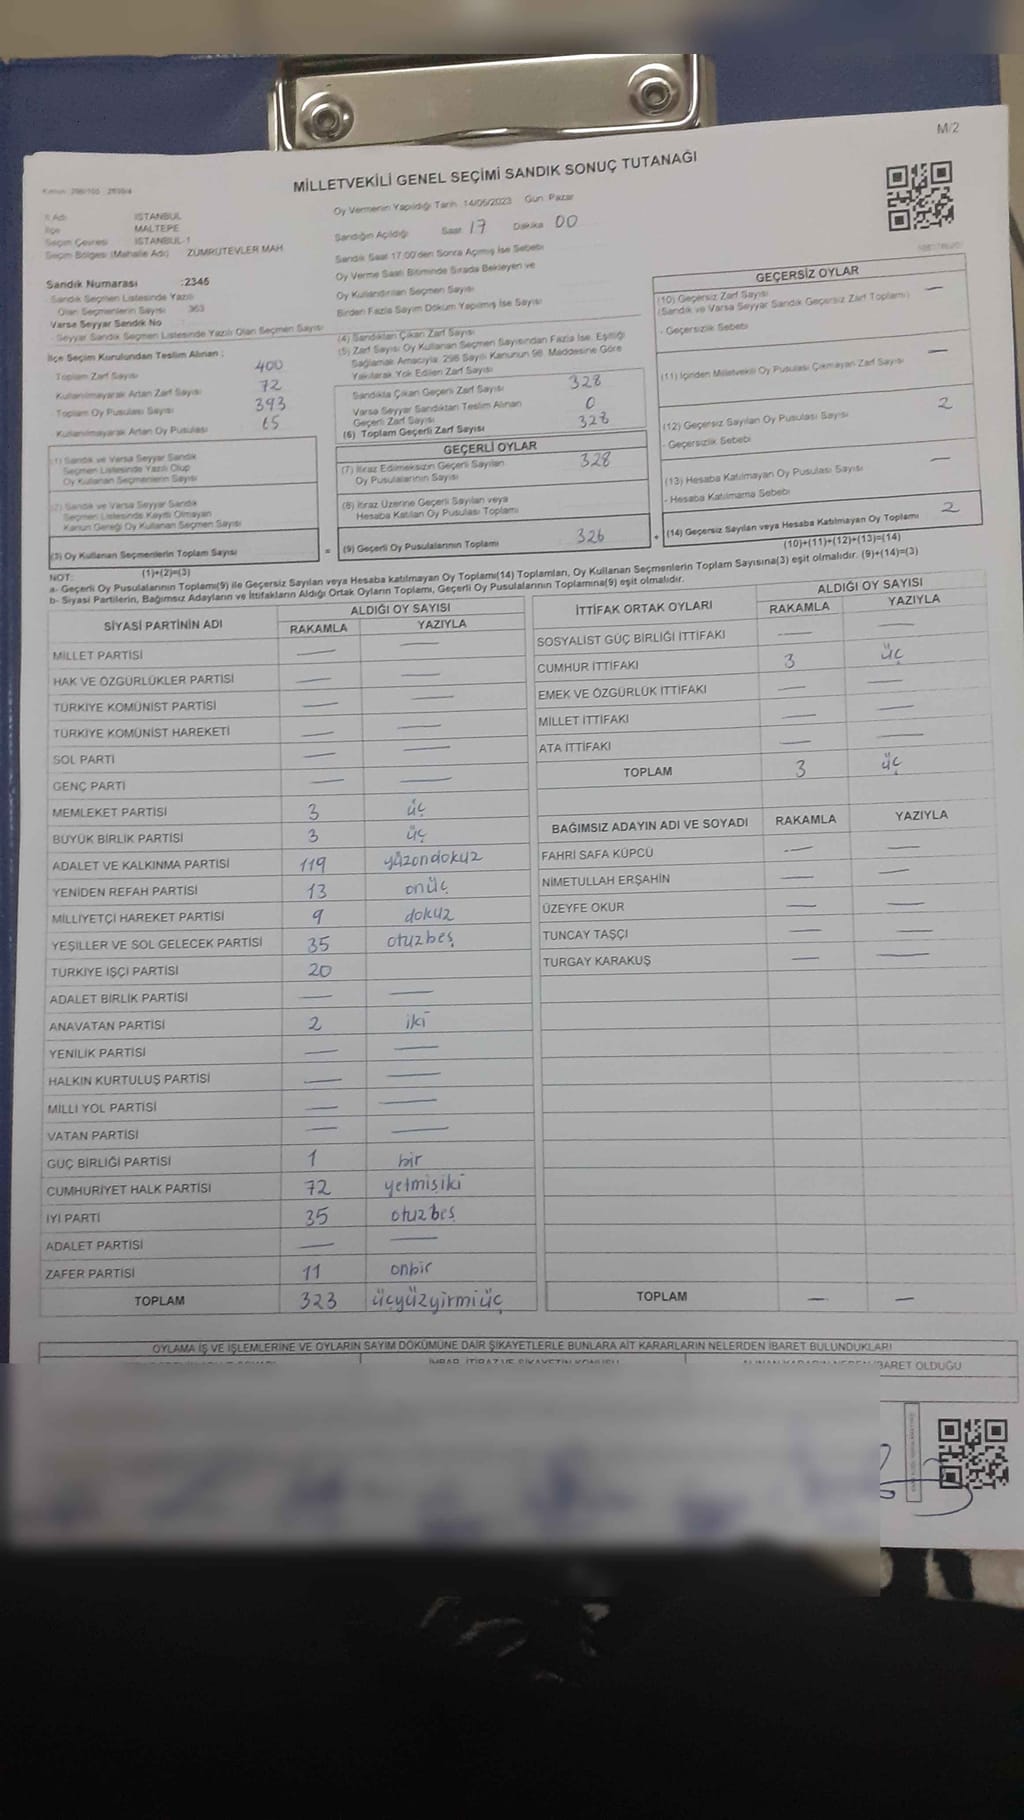 M/2
MİLLETVEKİLİ GENEL SEÇİMİ SANDIK SONUÇ TUTANAĞI
İl Adı İSTANBUL
İlçe MALTEPE
Seçim Çevresi İSTANBUL-1
Seçim Bölgesi (Mahalle Adı) ZÜMRÜTEVLER MAH
Sandık Numarası :2346
Sandık Seçmen Listesinde Yazılı
Olan Seçmenlerin Sayısı 363
Varsa Seyyar Sandık No
- Seyyar Sandık Seçmen Listesinde Yazılı Olan Seçmen Sayısı
İlçe Seçim Kurulundan Teslim Alınan :
Toplam Zarf Sayısı 400
Kullanılmayarak Artan Zarf Sayısı 72
Toplam Oy Pusulası Sayısı 393
Kullanılmayarak Artan Oy Pusulası 65
(1) Sandık ve Varsa Seyyar Sandık
Seçmen Listesinde Yazılı Olup
Oy Kullanan Seçmenlerin Sayısı
(2) Sandık ve Varsa Seyyar Sandık
Seçmen Listesinde Kayıtlı Olmayan
Kanun Gereği Oy Kullanan Seçmen Sayısı
(3) Oy Kullanan Seçmenlerin Toplam Sayısı =
(1)+(2)=(3)
Oy Vermenin Yapıldığı Tarih :14/05/2023 Gün: Pazar
Sandığın Açıldığı Saat 17 Dakika 00
Sandık Saat 17:00'den Sonra Açılmış İse Sebebi
Oy Verme Saati Bitiminde Sırada Bekleyen ve
Oy Kullandırılan Seçmen Sayısı
Birden Fazla Sayım Döküm Yapılmış İse Sayısı
(4) Sandıktan Çıkan Zarf Sayısı
(5) Zarf Sayısı Oy Kullanan Seçmen Sayısından Fazla İse, Eşitliği
Sağlamak Amacıyla, 298 Sayılı Kanunun 98. Maddesine Göre
Yakılarak Yok Edilen Zarf Sayısı
Sandıkta Çıkan Geçerli Zarf Sayısı 328
Varsa Seyyar Sandıktan Teslim Alınan
Geçerli Zarf Sayısı 0
(6) Toplam Geçerli Zarf Sayısı 328
GEÇERLİ OYLAR
(7) İtiraz Edilmeksizin Geçerli Sayılan
Oy Pusulalarının Sayısı 328
(8) İtiraz Üzerine Geçerli Sayılan veya
Hesaba Katılan Oy Pusulası Toplamı
(9) Geçerli Oy Pusulalarının Toplamı 326 +
GEÇERSİZ OYLAR
(10) Geçersiz Zarf Sayısı —
(Sandık ve Varsa Seyyar Sandık Geçersiz Zarf Toplamı)
- Geçersizlik Sebebi
(11) İçinden Milletvekili Oy Pusulası Çıkmayan Zarf Sayısı —
(12) Geçersiz Sayılan Oy Pusulası Sayısı 2
- Geçersizlik Sebebi
(13) Hesaba Katılmayan Oy Pusulası Sayısı —
- Hesaba Katılmama Sebebi
(14) Geçersiz Sayılan veya Hesaba Katılmayan Oy Toplamı 2
(10)+(11)+(12)+(13)=(14)
NOT:
a- Geçerli Oy Pusulalarının Toplamı(9) ile Geçersiz Sayılan veya Hesaba katılmayan Oy Toplamı(14) Toplamları, Oy Kullanan Seçmenlerin Toplam Sayısına(3) eşit olmalıdır. (9)+(14)=(3)
b- Siyasi Partilerin, Bağımsız Adayların ve İttifakların Aldığı Ortak Oyların Toplamı, Geçerli Oy Pusulalarının Toplamına(9) eşit olmalıdır.
SİYASİ PARTİNİN ADI ALDIĞI OY SAYISI
RAKAMLA YAZIYLA
MİLLET PARTİSİ — —
HAK VE ÖZGÜRLÜKLER PARTİSİ — —
TÜRKİYE KOMÜNİST PARTİSİ — —
TÜRKİYE KOMÜNİST HAREKETİ — —
SOL PARTİ — —
GENÇ PARTİ — —
MEMLEKET PARTİSİ 3 üç
BÜYÜK BİRLİK PARTİSİ 3 üç
ADALET VE KALKINMA PARTİSİ 119 yüzondokuz
YENİDEN REFAH PARTİSİ 13 onüç
MİLLİYETÇİ HAREKET PARTİSİ 9 dokuz
YEŞİLLER VE SOL GELECEK PARTİSİ 35 otuzbeş
TÜRKİYE İŞÇİ PARTİSİ 20
ADALET BİRLİK PARTİSİ — —
ANAVATAN PARTİSİ 2 iki
YENİLİK PARTİSİ — —
HALKIN KURTULUŞ PARTİSİ — —
MİLLİ YOL PARTİSİ — —
VATAN PARTİSİ — —
GÜÇ BİRLİĞİ PARTİSİ 1 bir
CUMHURİYET HALK PARTİSİ 72 yetmişiki
İYİ PARTİ 35 otuzbeş
ADALET PARTİSİ — —
ZAFER PARTİSİ 11 onbir
TOPLAM 323 üçyüzyirmiüç
İTTİFAK ORTAK OYLARI ALDIĞI OY SAYISI
RAKAMLA YAZIYLA
SOSYALİST GÜÇ BİRLİĞİ İTTİFAKI — —
CUMHUR İTTİFAKI 3 üç
EMEK VE ÖZGÜRLÜK İTTİFAKI — —
MİLLET İTTİFAKI — —
ATA İTTİFAKI — —
TOPLAM 3 üç
BAĞIMSIZ ADAYIN ADI VE SOYADI RAKAMLA YAZIYLA
FAHRİ SAFA KÜPCÜ — —
NİMETULLAH ERŞAHİN — —
ÜZEYFE OKUR — —
TUNCAY TAŞÇI — —
TURGAY KARAKUŞ — —
TOPLAM — —
OYLAMA İŞ VE İŞLEMLERİNE VE OYLARIN SAYIM DÖKÜMÜNE DAİR ŞİKAYETLERLE BUNLARA AİT KARARLARIN NELERDEN İBARET BULUNDUKLARI
İHBAR, İTİRAZ VE ŞİKAYETİN KONUSU
İBARET OLDUĞU